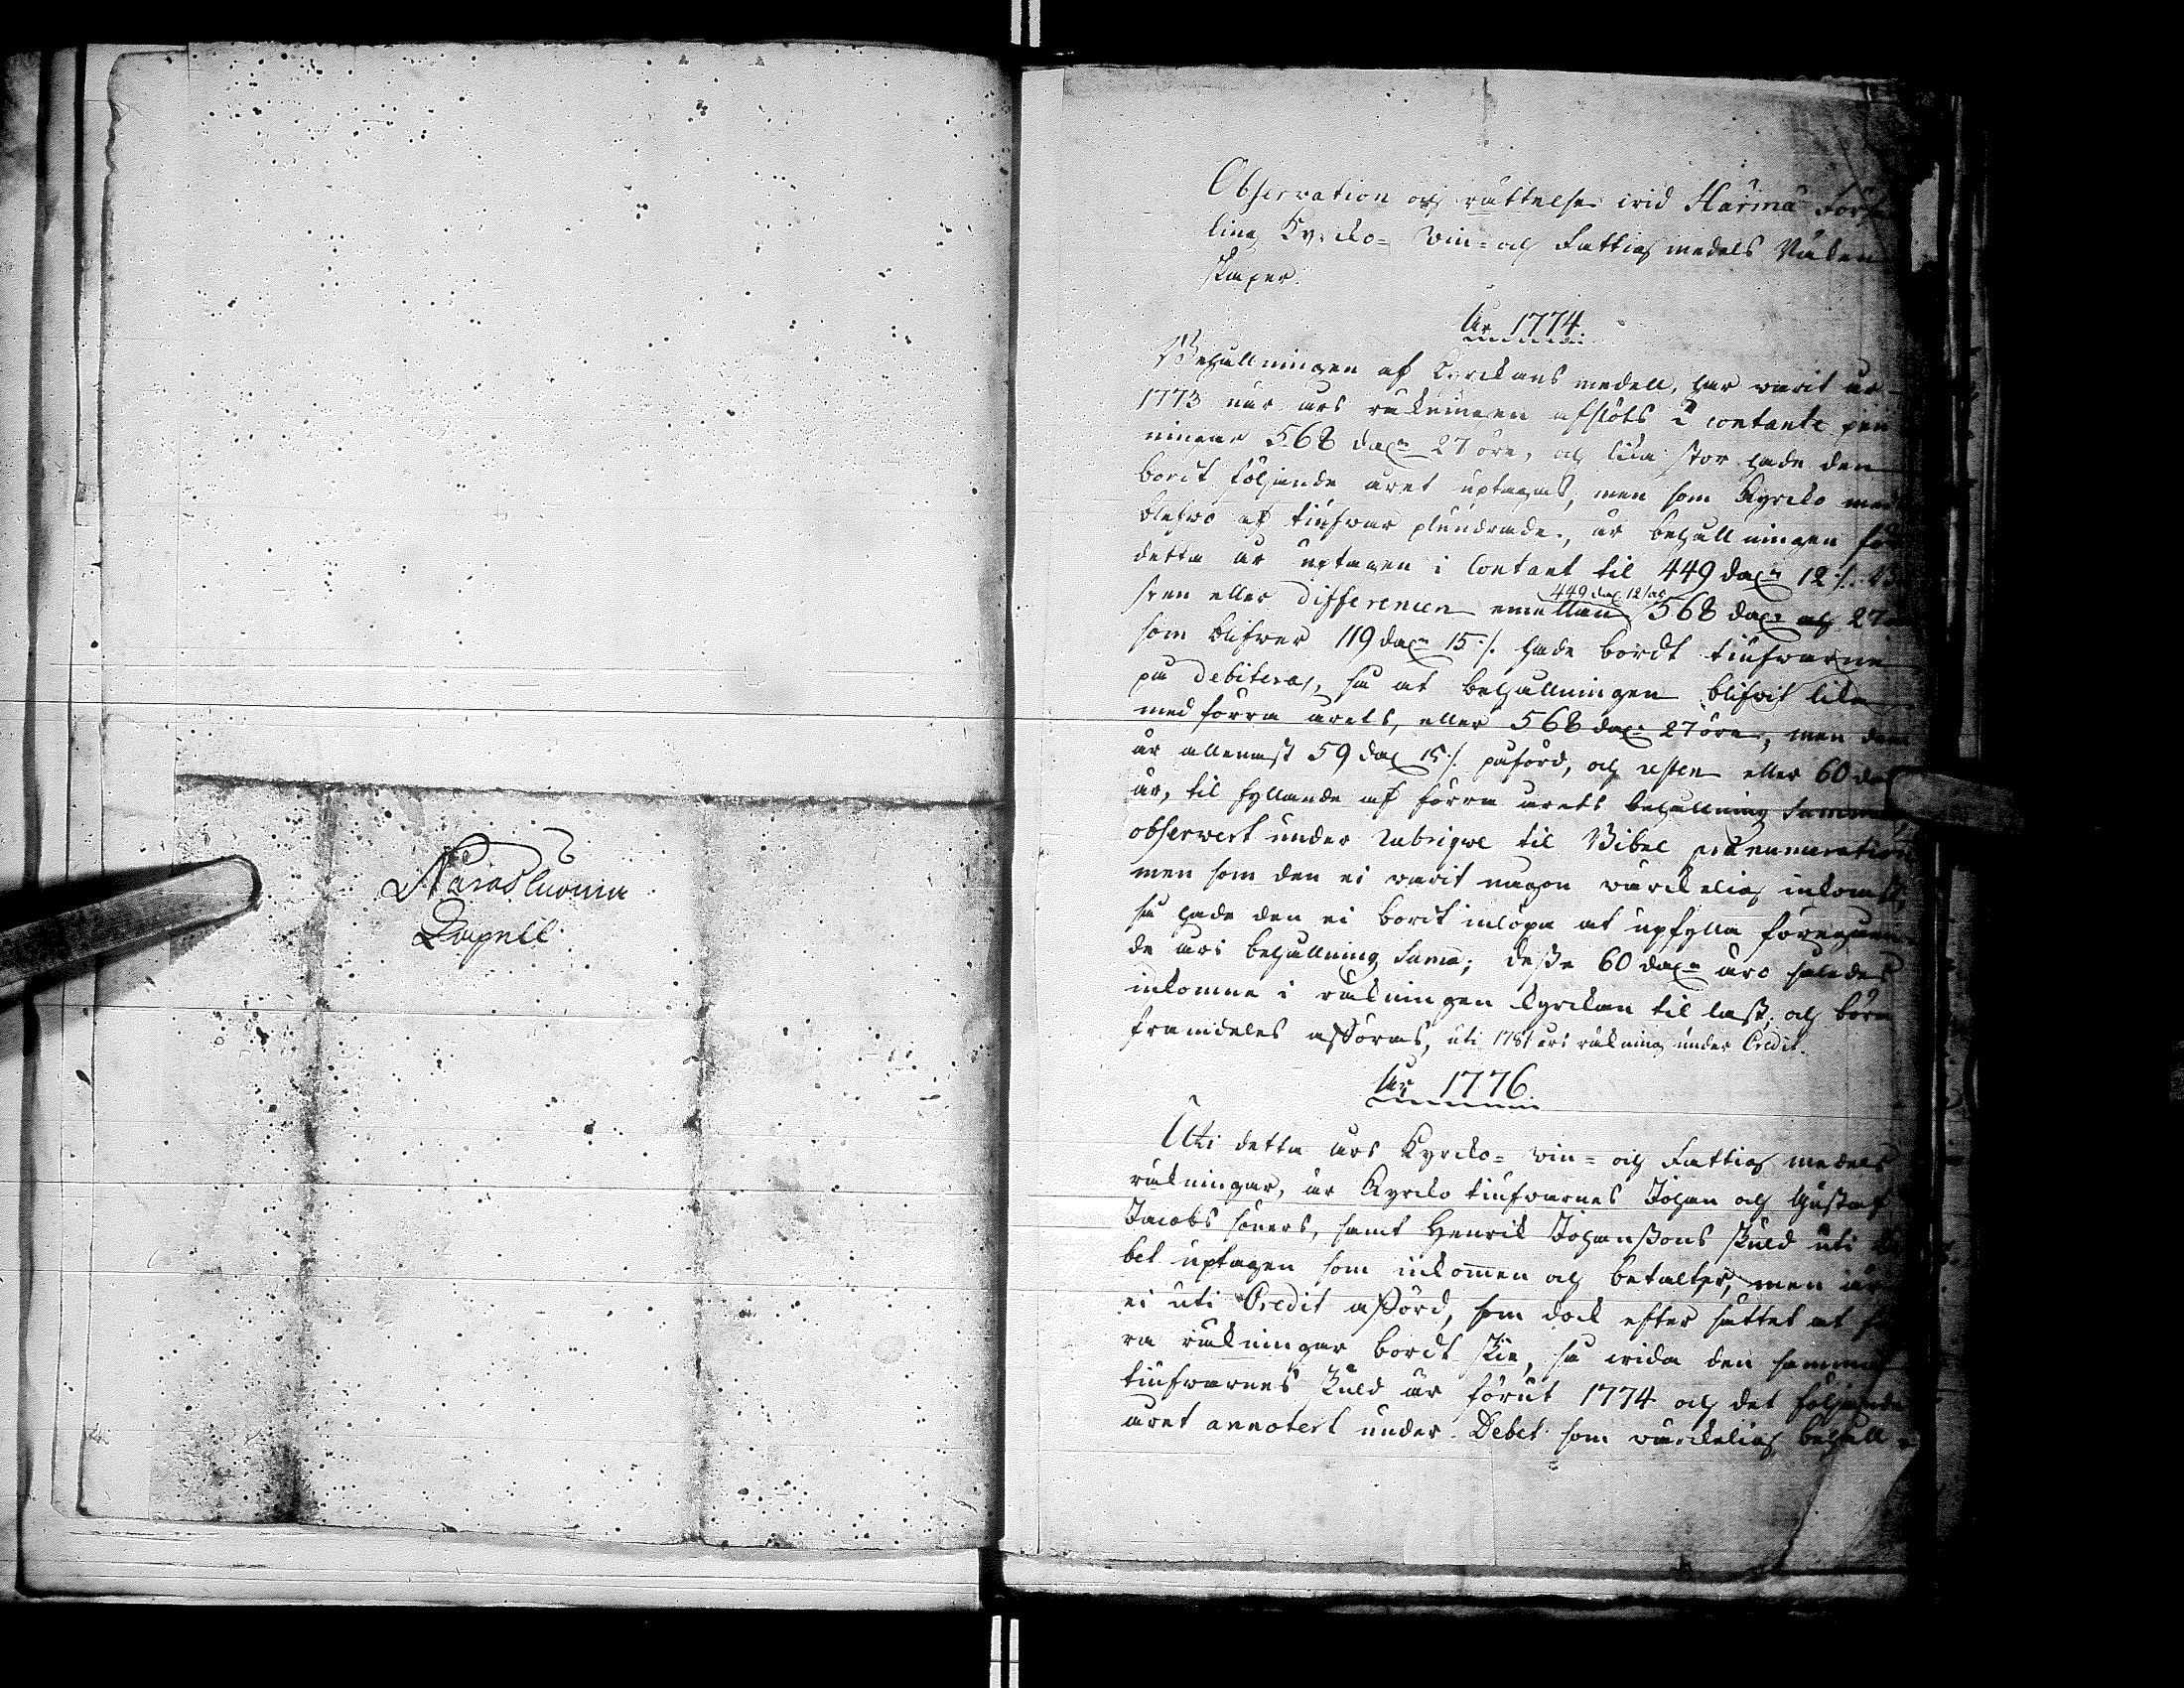 Observation och rättelse wid Härmä Förſam
ling Kyrcko- win- och Fattigmedels Räken
skaper.
År 1774.
Behållningen af Kyrckans medell, har warit år
1773 när års räkningen afslöts i contante pen
ningar 568 dal:r 27 öre, och lika stor hade den
bordt följande året uptagas, men som Kyrcko med
blefwo af tiufwar plundrade, är behållningen för
detta år uptagen i Contant til 449 dal:r 12 /.
eller differencen emellan 449 dal. 12 /. och 568 dal:r och 27
som blifwer 119 dal:r 15 /. hade bordt tiufwarne
på debiteras, så at behållningen blifwit lika
med förra årets, eller 568 dal:r 27 öre, men dem
är allenast 59 dal 15 /. påförd, och resten eller 60 dal
är, til fyllande af förra årets behållning Summa,
obserwert under Rubriqve til Bibel prænumeration
men som den ei warit någon wärckelig inkomst,
så hade den ei bordt inlöpa at upfylla föregåen
de års behållning Summa; deße 60 dal:r äro således
inkomne i räkningen kyrckan til last, och böra
framdeles afföras, uti 1781 års räkning under Credit.
År 1776
Uti detta års Kyrcko- win- och Fattig medels
räkningar, är Kyrcko tiufwarnes Johan och Gustaf
Jacobs söners, samt Henrik Johanßons skuld uti De
bet uptagen som inkommen och betalter, men är
ei uti Credit afförd, som dock efter sättet at fö
ra räkningar bordt skie, så wida den samma
tiufwarnes skuld är förut 1774 och det följande
året annotert under Debet som wärckelig behåll-
Kapell